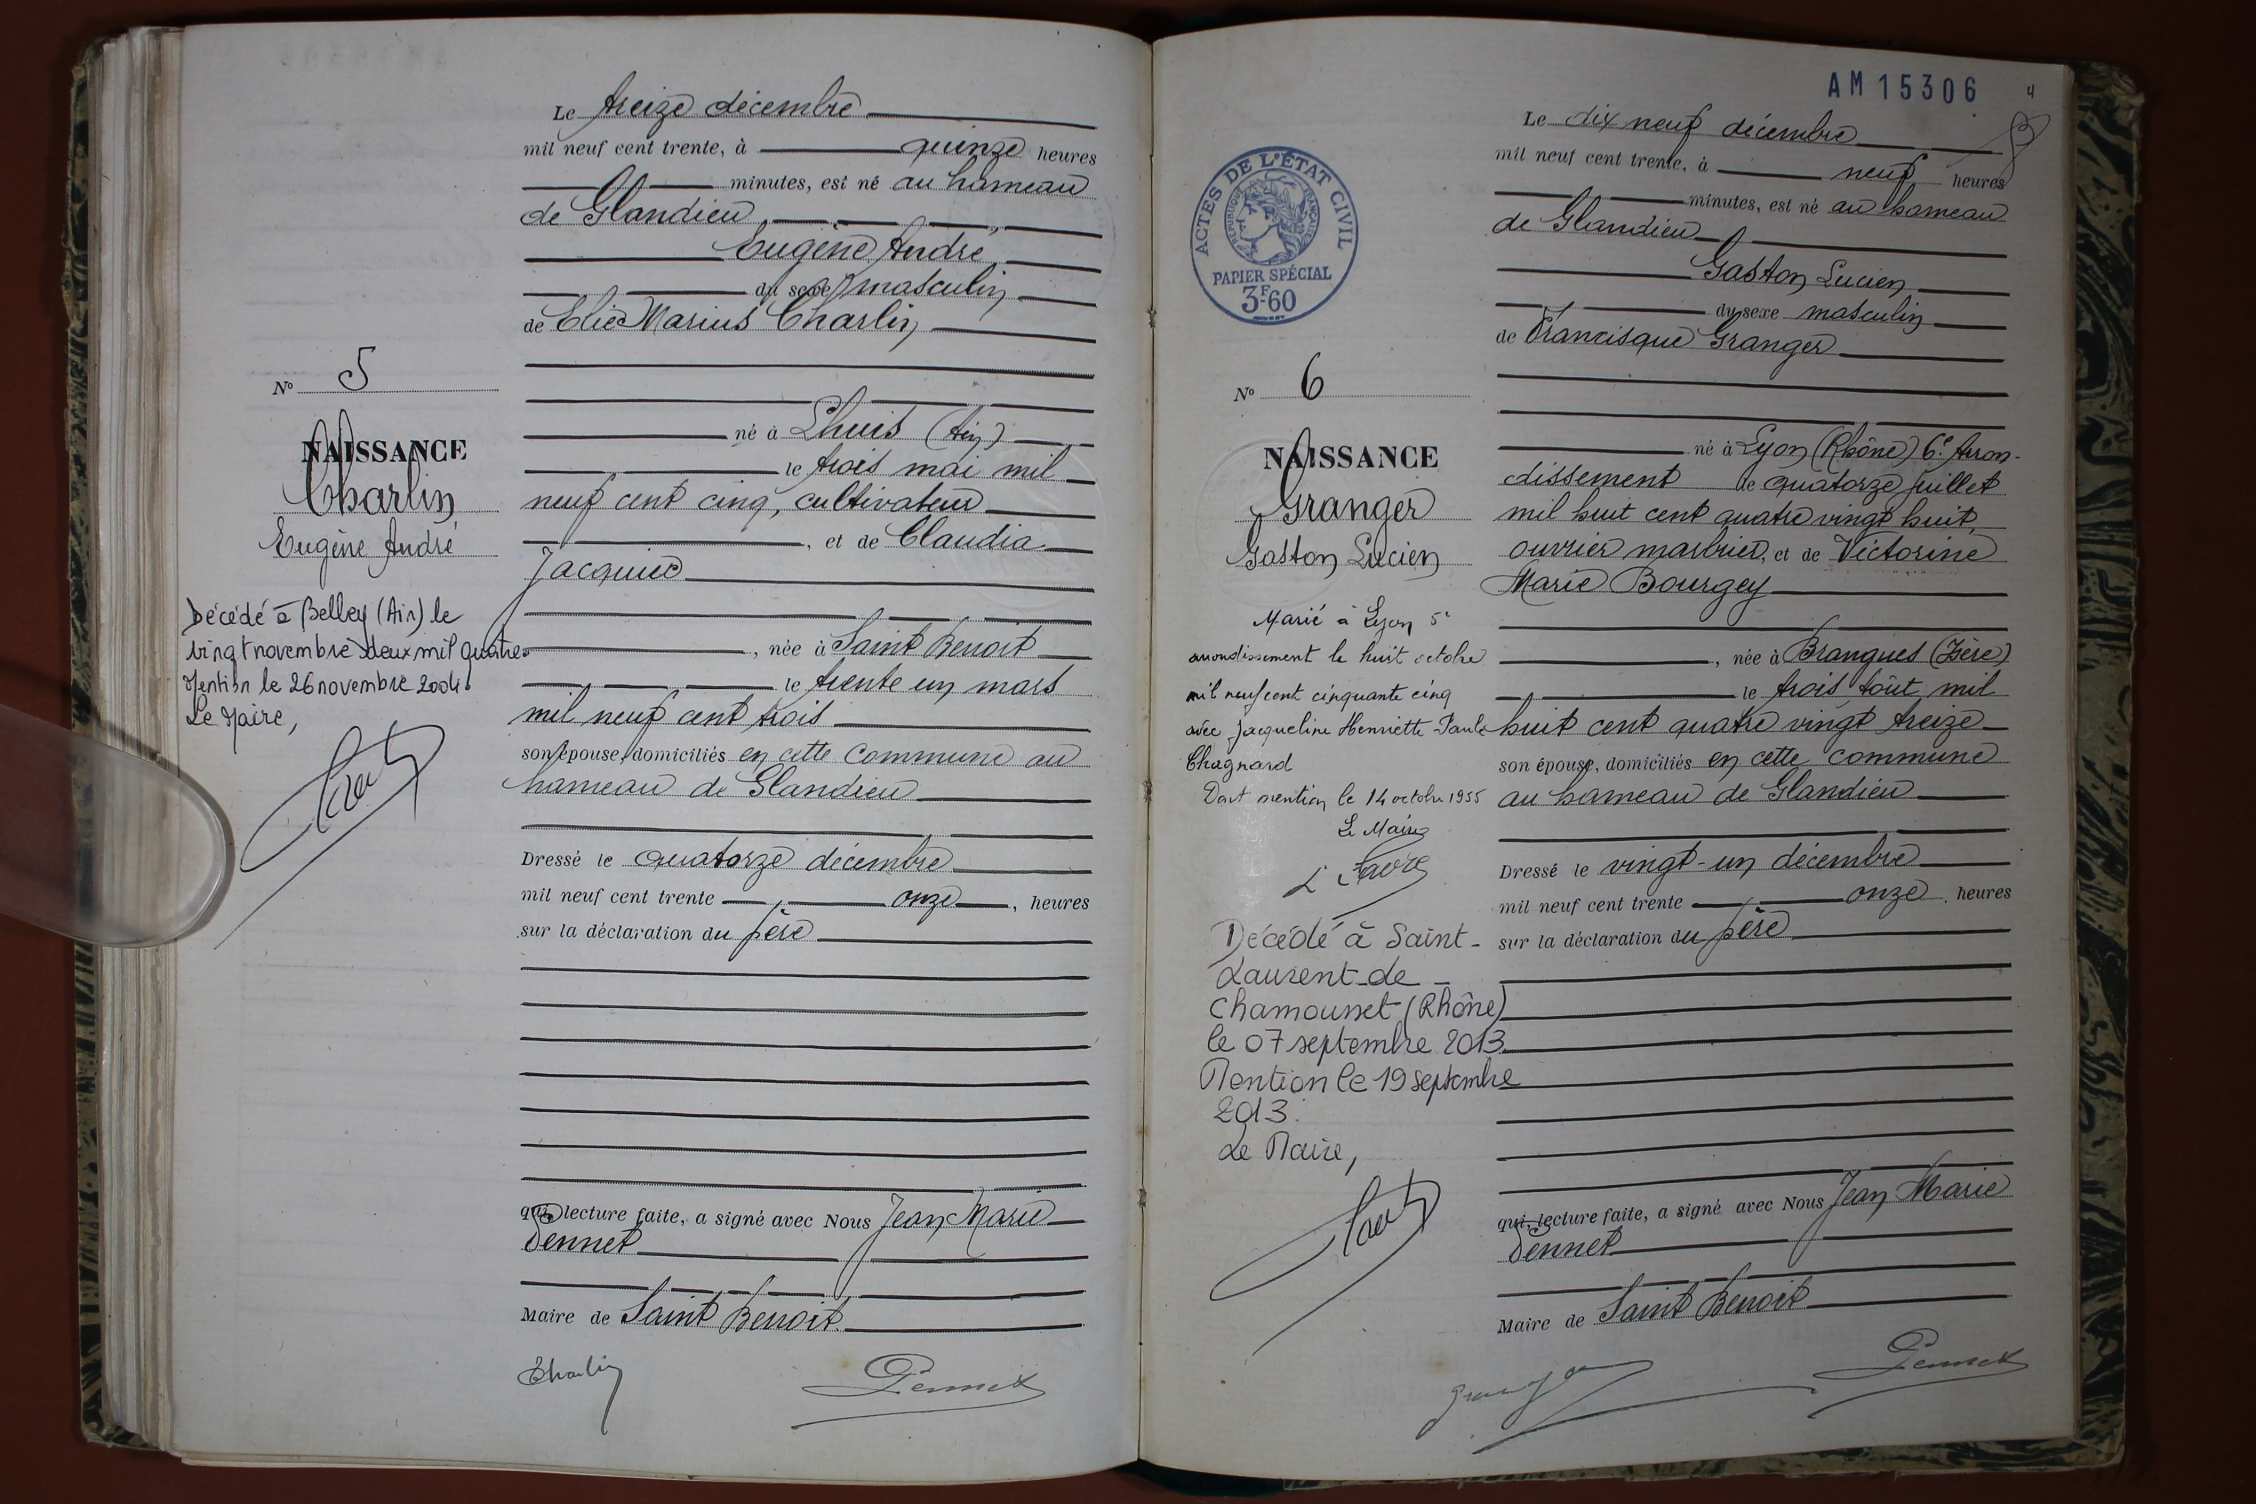 Le treize décembre
mil neuf cent trente, à quinze heures
minutes, est né au hameau
de Glandieu
Eugène André
du sexe masculin
de Elie Marius Charlin
né à Lhuis (Ain)
le trois mai mil
neuf cent cinq, cultivateur
, et de Claudia
Jacquier
, née à Saint Benoit
le trente un mars
mil neuf cent trois
son épouse, domiciliés en cette commune au
hameau de Glandieu
Dressé le quatorze décembre
mil neuf cent trente onze, heures
sur la déclaration du père
qui, lecture faite, a signé avec Nous Jean Marie
Pennet
Maire de Saint Benoit
Charlin
Pennet
No 5
NAISSANCE
Charlin
Eugène André
Décédé à Belley (Ain) le
vingt novembre deux mil quatre
Mention le 26 novembre 2004
Le Maire,
AM 15306
4
Le dix neuf décembre
mil neuf cent trente, à neuf heures
minutes, est né au hameau
de Glandieu
Gaston Lucien
du sexe masculin
de Francisque Granger
né à Lyon (Rhône) 6e Arron-
dissement le quatorze juillet
mil huit cent quatre vingt huit,
ouvrier marbrier, et de Victorine
Marie Bourgey
, née à Brangues (Isère)
le trois août mil
huit cent quatre vingt treize
son épouse, domiciliés en cette commune
au hameau de Glandieu
Dressé le vingt-un décembre
mil neuf cent trente onze, heures
sur la déclaration du père
qui, lecture faite, a signé avec Nous Jean Marie
Pennet
Maire de Saint Benoit
Granger
Pennet
ACTES DE L'ÉTAT CIVIL
RÉPUBLIQUE FRANÇAISE
PAPIER SPÉCIAL
3F60
No 6
NAISSANCE
Granger
Gaston Lucien
Marié à Lyon 5e
arrondissement le huit octobre
mil neuf cent cinquante cinq
avec Jacqueline Henriette Paule
Chagnard
Dont mention le 14 octobre 1955
Le Maire
L Favre
Décédé à Saint-
Laurent-de-
Chamousset (Rhône)
le 07 septembre 2013
Mention le 19 septembre
2013.
Le Maire,